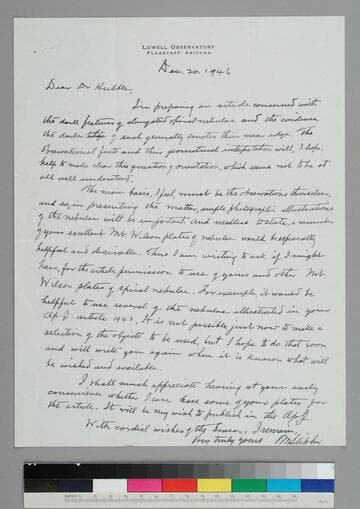 LOWELL OBSERVATORY
FLAGSTAFF, ARIZONA
Dec. 20. 1946
Dear Dr Hubble,
I'm preparing an article concerned with
the dark features of elongated spiral nebulae and the evidence
the darker edge of such generally denotes their near edge. The
observational facts and their geometrical interpretation will, I hope,
help to make clear this question of orientation, which seems not to be at
all well understood.
The main basis, I feel must be the observations themselves,
and so, in presenting the matter, ample photographic illustrations
of the nebulae will be important. And needless to state, a number
of your excellent Mt. Wilson plates of nebulae would be especially
helpful and desirable. Thus I am writing to ask if I might
have, for the article, permission to use of yours and other Mt.
Wilson plates of spiral nebulae. For example, it would be
helpful to use several of the nebulae illustrated in your
Ap J. article 1943. It is not possible just now to make a
selection of the objects to be used, but I hope to do that soon
and will write you again when it is known what will
be wished and available.
I shall much appreciate hearing at your early
convenience whether I can have some of your plates for
the article. It will be my wish to publish in the Ap J.
With cordial wishes of the Season, I remain,
Very truly yours